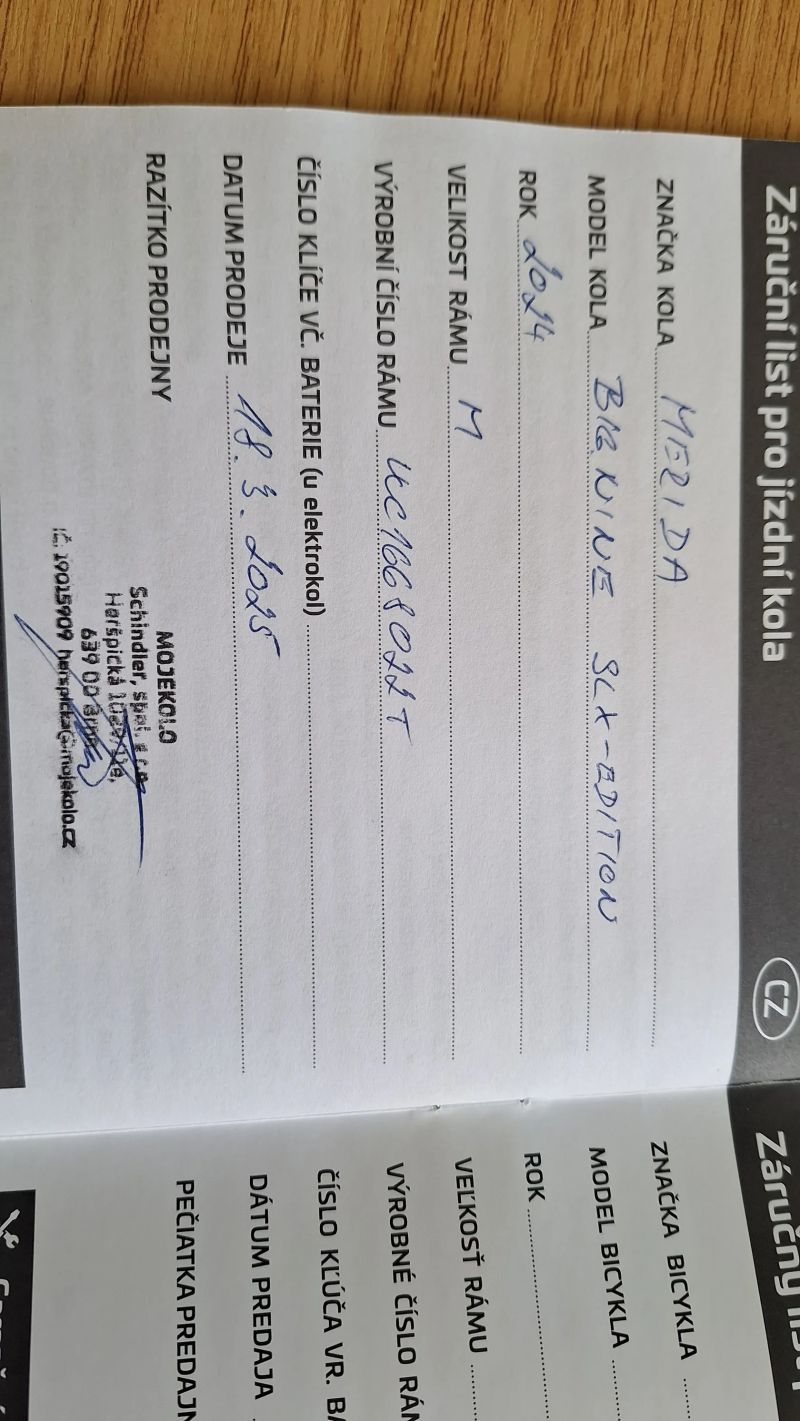 Záruční list pro jízdní kola CZ
ZNAČKA KOLA MERIDA
MODEL KOLA BIG.NINE SLX-EDITION
ROK 2024
VELIKOST RÁMU M
VÝROBNÍ ČÍSLO RÁMU
ČÍSLO KLÍČE VČ. BATERIE (u elektrokol)
DATUM PRODEJE 18. 3. 2025
RAZÍTKO PRODEJNY
MOJEKOLO
Schindler, spol. s r.o.
Heršpická
639 00 Brno
IČ: 19015909 herspicka@mojekolo.cz
Záručný
ZNAČKA BICYKLA
MODEL BICYKLA
ROK
VEĽKOSŤ RÁMU
VÝROBNÉ ČÍSLO
ČÍSLO KĽÚČA VR.
DÁTUM PREDAJA
PEČIATKA